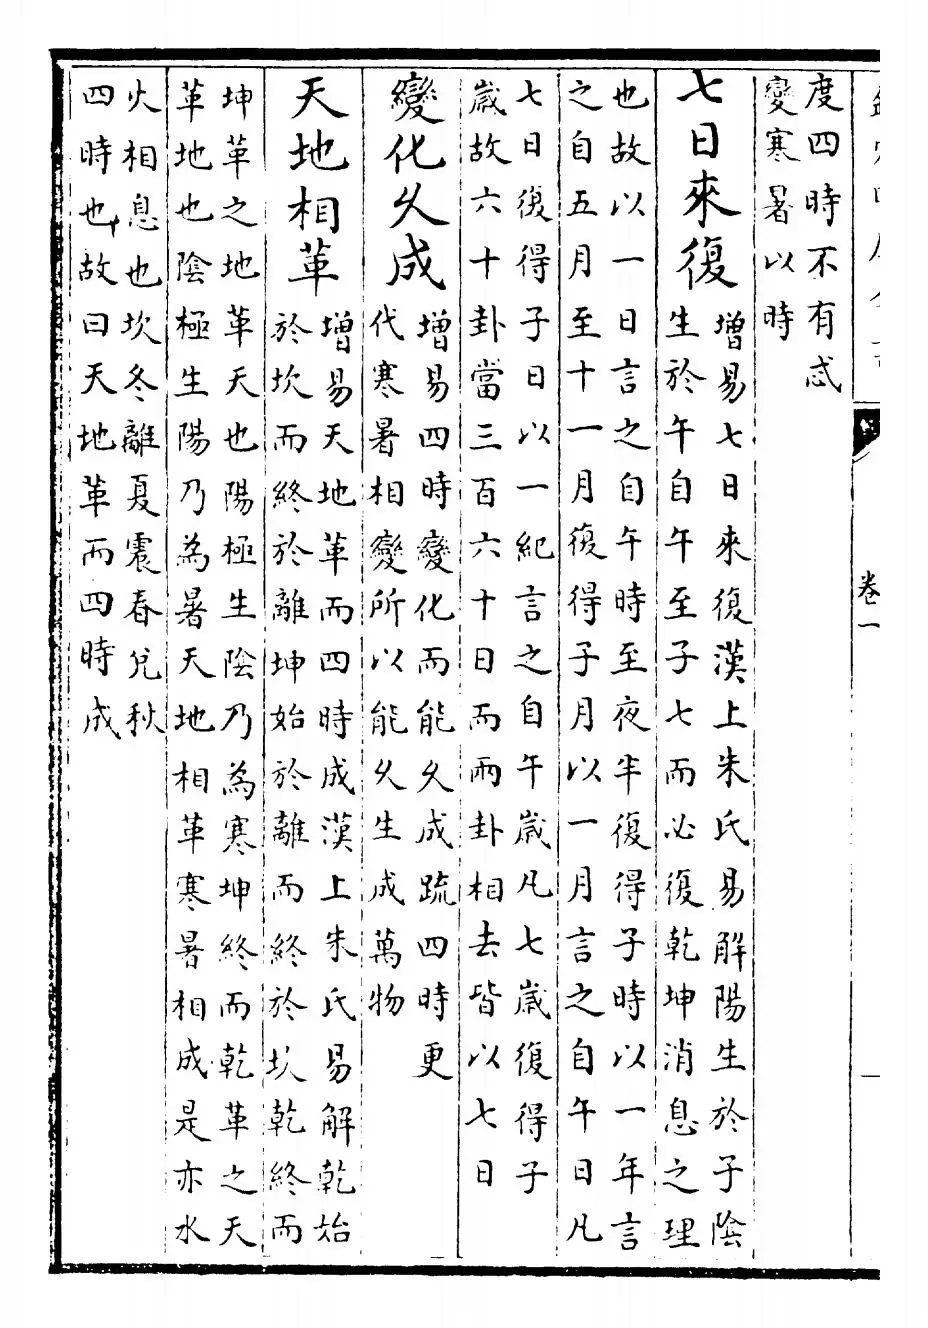 卷一
度四時不有忒
變寒暑以時
七日來復
增易七日來復漢上朱氏易解陽生於子陰
生於午自午至子七而必復乾坤消息之理
也故以一日言之自午時至夜半復得子時以一年言
之自五月至十一月復得子月以一月言之自午日凡
七日復得子日以一紀言之自午歲凡七歲復得子
歲故六十卦當三百六十日而兩卦相去皆以七日
變化久成
增易四時變化而能久成疏四時更
代寒暑相變所以能久生成萬物
天地相革
增易天地革而四時成漢上朱氏易解乾始
於坎而終於離坤始於離而終於坎乾終而
坤革之地革天也陽極生陰乃為寒坤終而乾革之天
革地也陰極生陽乃為暑天地相革寒暑相成是亦水
火相息也坎冬離夏震春兌秋
四時也故曰天地革而四時成